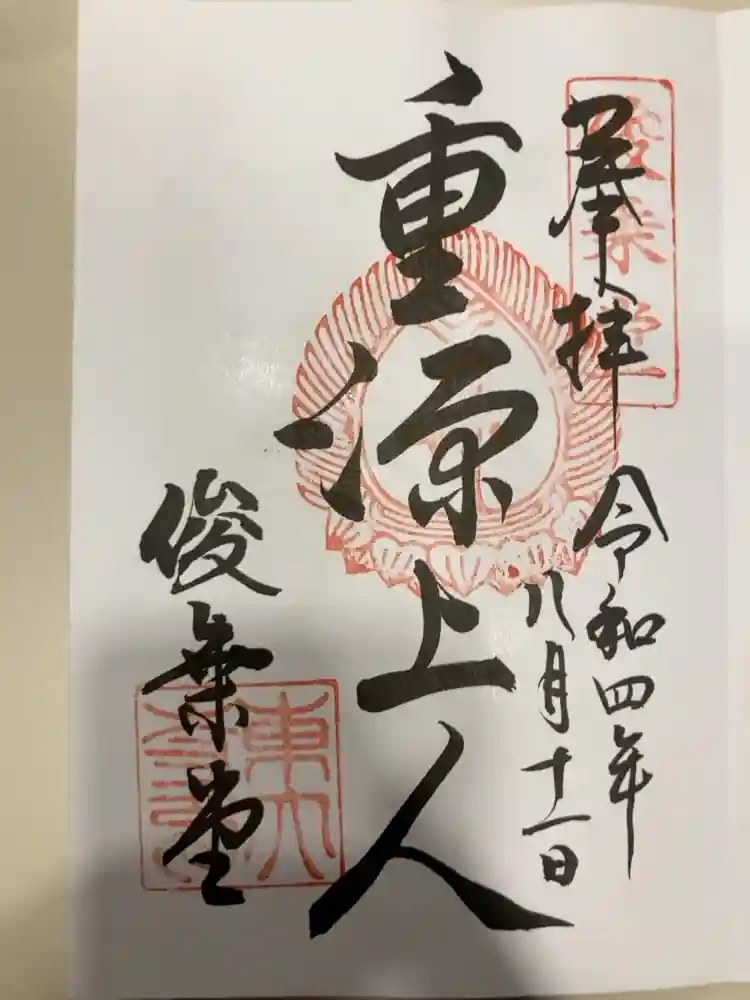 奉拝
俊乗堂
令和四年
八月十一日
重源上人
俊乗堂
東大